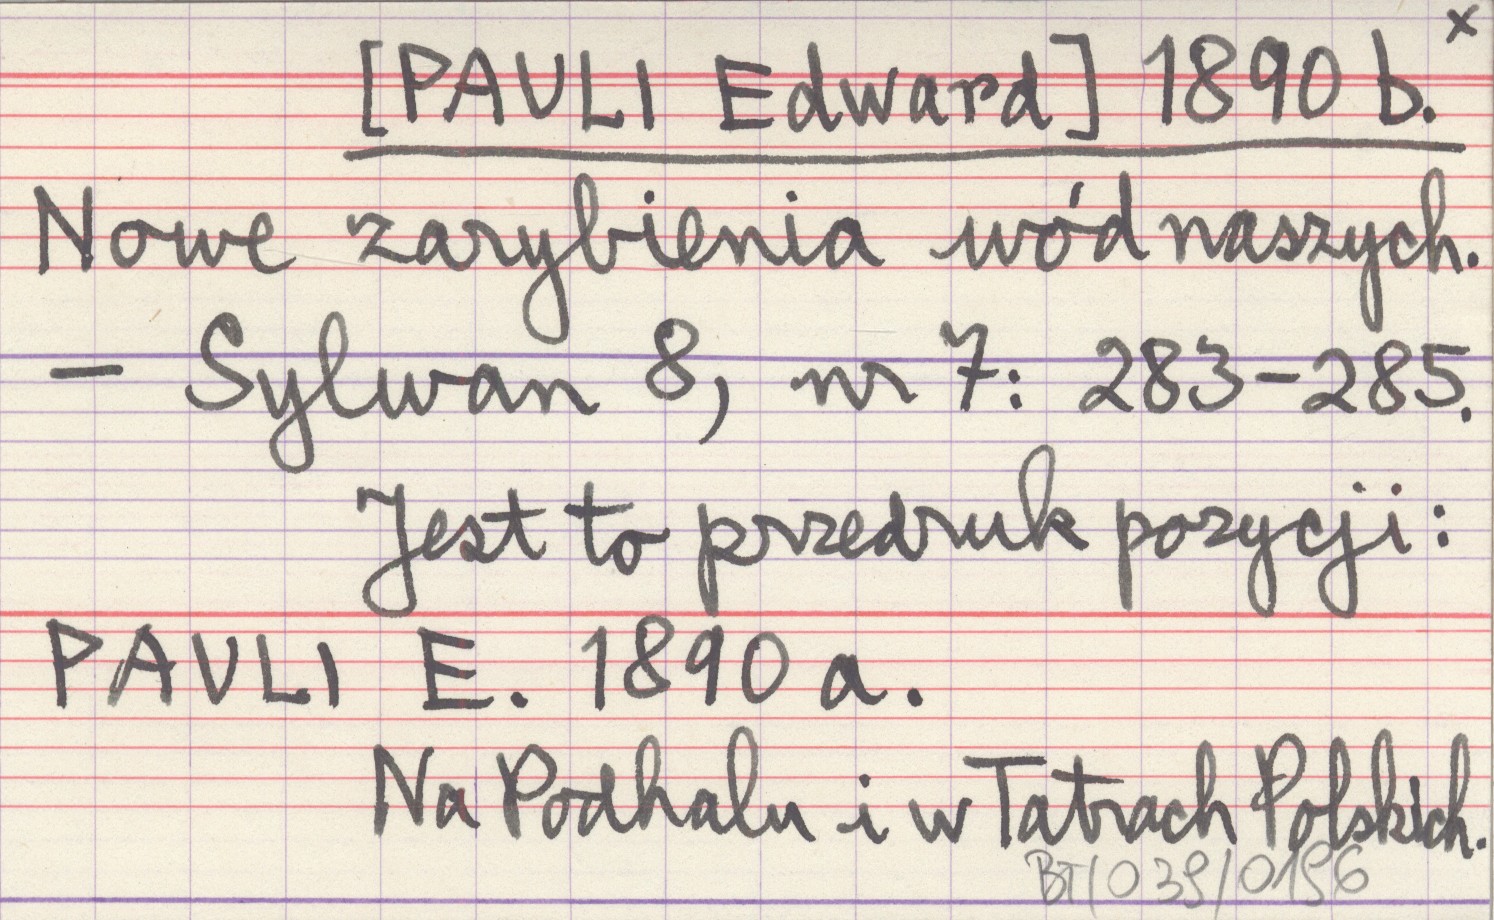 x
[PAULI Edward] 1890 b.
Nowe zarybienia wód naszych.
– Sylwan 8, nr 7: 283–285.
Jest to przedruk pozycji:
PAULI E. 1890 a.
Na Podhalu i w Tatrach Polskich.
BT/039/0196